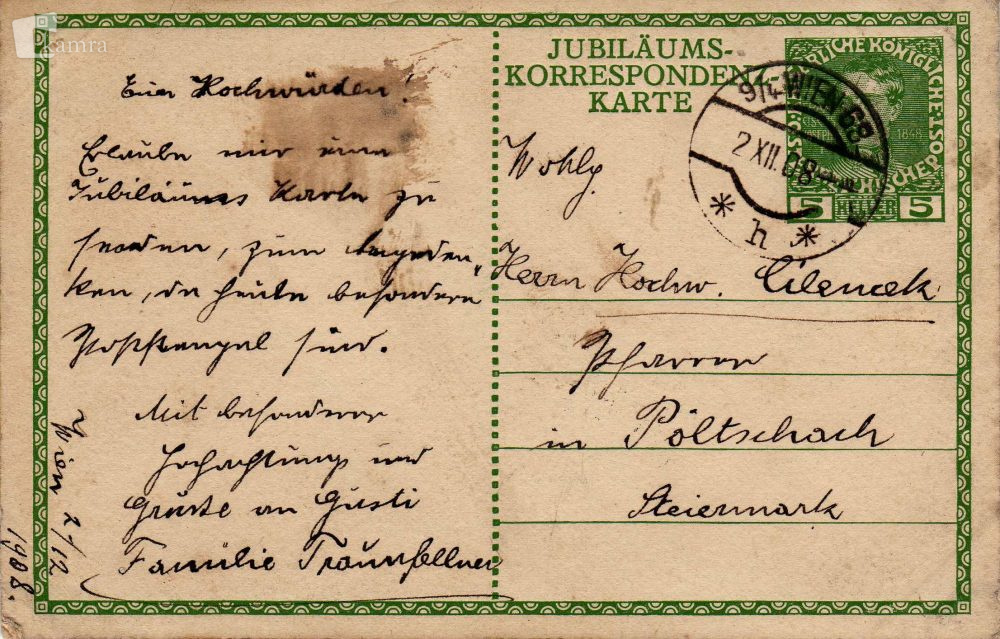 kamra
Euer Hochwürden!
Erlaube mir eine
Jubiläums Karte zu
senden, zum
ken, da heute besondere
Poststempel sind.
Mit besonderer
Hochachtung und
Grüsse an Gusti
Familie Traunfellner
Wien 2/12
1908.
JUBILÄUMS-
KORRESPONDENZ-
KARTE
KAISERLICHE KÖNIGLICHE ÖST
1848
5 HELLER 5
9/4 WIEN 68
2 XII.08
* h *
Wohlg.
Herrn Hochw. Cilenšek
Pfarrer
in Pöltschach
Steiermark